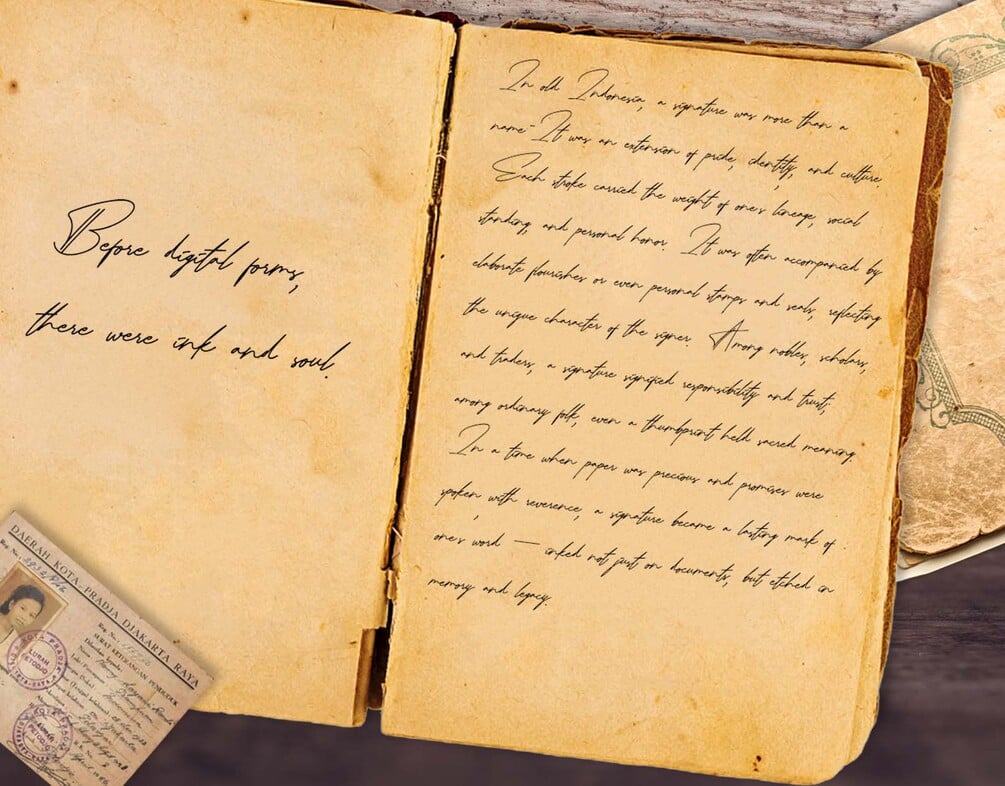 Before digital forms,
there were ink and soul.
In old Indonesia, a signature was more than a
name-It was an extension of pride, identity, and culture.
Each stroke carried the weight of one's lineage, social
standing, and personal honor. It was often accompanied by
elaborate flourishes or even personal stamps and seals, reflecting
the unique character of the signer. Among nobles, scholars,
and traders, a signature signified responsibility and trust;
among ordinary folk, even a thumbprint held sacred meaning.
In a time when paper was precious and promises were
spoken with reverence, a signature became a lasting mark of
one's word — inked not just on documents, but etched in
memory and legacy.
DAERAH KOTA-PRADJA DJAKARTA RAYA
Reg. No.
SURAT KETERANGAN PENDUDUK
LURAH
PETODJO